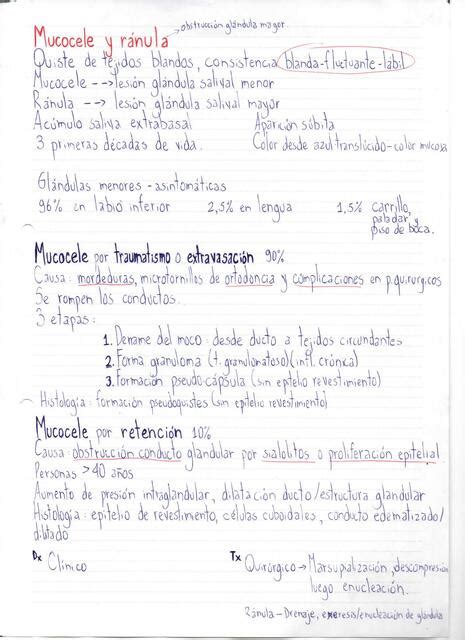 Mucocele y ránula → obstrucción glándula mayor.
Quiste de tejidos blandos, consistencia blanda-fluctuante-labil
Mucocele --> lesión glándula salival menor
Ránula --> lesión glándula salival mayor
Acúmulo saliva extrabasal Aparición súbita
3 primeras décadas de vida. Color desde azul translúcido-color mucosa
Glándulas menores - asintomáticas
96% en labio inferior 2,5% en lengua 1,5% carrillo,
paladar, y
piso de boca.
Mucocele por traumatismo o extravasación 90%
Causa: mordeduras, microtornillos de ortodoncia y complicaciones en p.quirurgicos
Se rompen los conductos.
3 etapas:
1. Derrame del moco: desde ducto a tejidos circundantes
2. Forma granuloma (t. granulomatoso)(infl. crónica)
3. Formación pseudocápsula (sin eptelio revestimiento)
Histología: formación pseudoquistes (sin epitelio revestimiento)
Mucocele por retención 10%
Causa: obstrucción conducto glandular por sialolitos o proliferación epitelial
Personas >40 años
Aumento de presión intraglandular, dilatación ducto/estructura glandular
Histología: epitelio de revestimiento, células cuboidales, conducto edematizado/
dilatado
Dx Clínico Tx Quirúrgico → Marsupialización, descompresión
luego enucleación.
Ránula - Drenaje, exeresis/enucleación de glándula